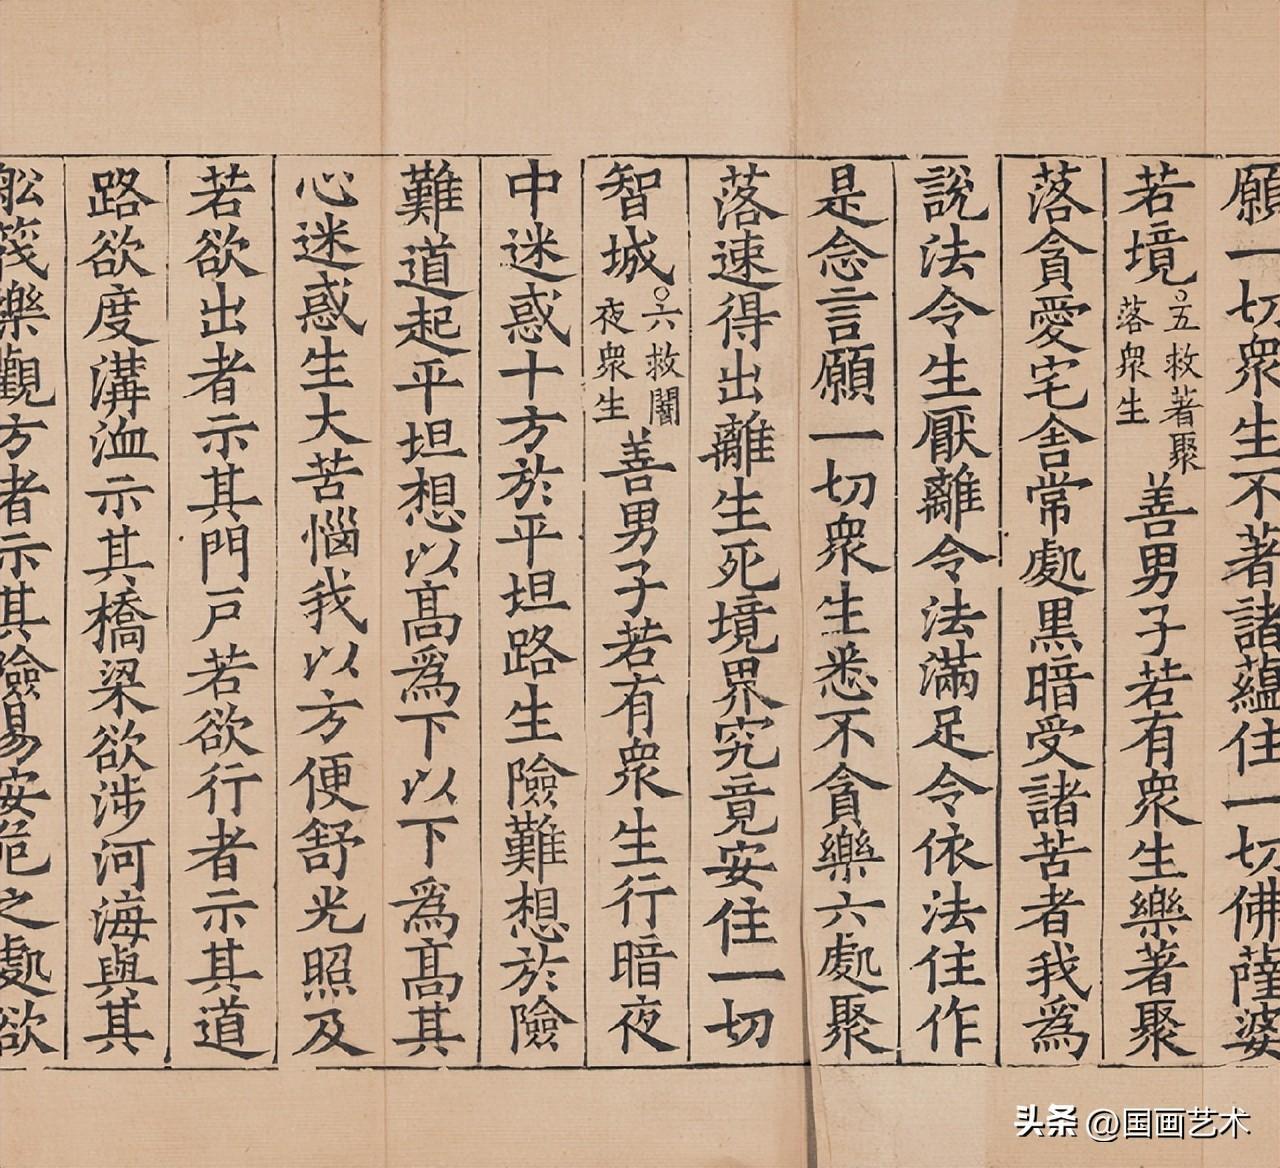 願一切衆生不著諸蘊住一切佛薩婆
若境○五救著聚落衆生善男子若有衆生樂著聚
落貪愛宅舍常處黑暗受諸苦者我爲
說法令生厭離令法滿足令依法住作
是念言願一切衆生悉不貪樂六處聚
落速得出離生死境界究竟安住一切
智城○六救闇夜衆生善男子若有衆生行暗夜
中迷惑十方於平坦路生險難想於險
難道起平坦想以高爲下以下爲高其
心迷惑生大苦惱我以方便舒光照及
若欲出者示其門戸若欲行者示其道
路欲度溝洫示其橋梁欲涉河海與其
舩筏樂觀方者示其險易安危之處欲
头条 @国画艺术